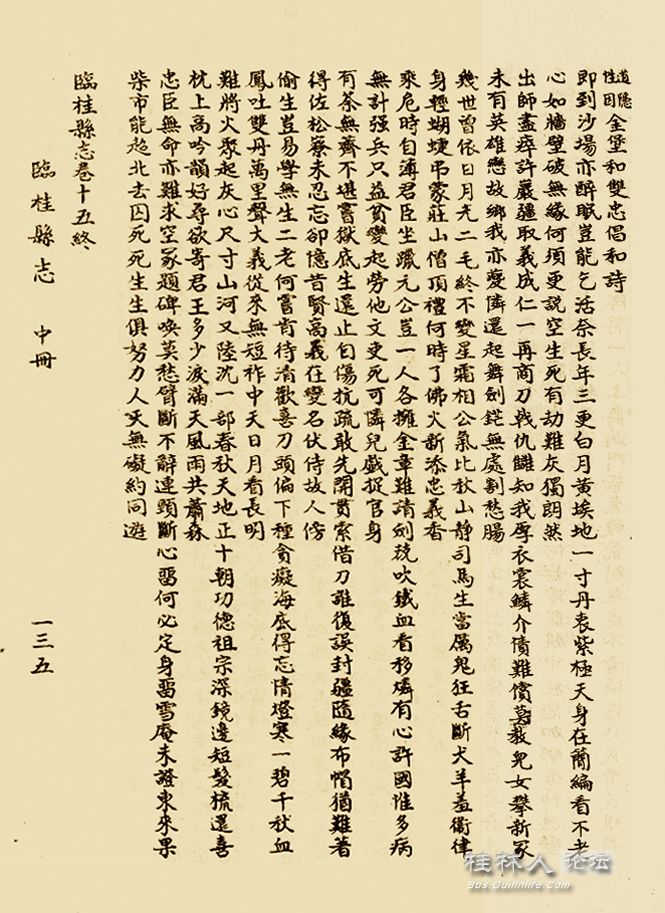 道隱
性因
金堡和雙忠倡和詩
即到沙場亦醉眠豈能乞活祭長年三更白月黃埃地一寸丹衷紫極天身在蕳編看不老
心如牆壁破無緣何須更說空生死有劫難灰獨朗然
出師盡瘁許嚴疆取義成仁一再商刀戟仇讎知我厚衣裳鱗介債難償莫教兒女攀新冢
未有英雄戀故鄉我亦愛憐還起舞劍鋩無處割愁腸
幾世曾依日月光二毛終不變星霜相公氣比秋山靜司馬生當厲鬼狂舌斷犬羊羞衞律
身輕蝴蜨弔蒙莊山僧頂禮何時了佛火新添忠義香
乘危時自薄君臣坐躐元公豈一人各擁金章難請劍競吹鐵血看移燐有心許國惟多病
無計强兵只益貧變起勞他文吏死可憐兒戲捉官身
有荼無薺不堪嘗獄底生還止自傷抗疏敢先開貫索借刀誰復誤封疆隨緣布帽猶難著
得佐松寮未忍忘卻憶昔賢高義在變名伏侍故人傍
偷生豈易學無生二老何嘗肯待清歡喜刀頭偏下種貪癡海底得忘情燈寒一碧千秋血
鳳吐雙丹萬里聲大義從來無短祚中天日月看長明
難將火聚起灰心尺寸山河又陸沈一部春秋天地正十朝功德祖宗深鏡邊短髮梳還喜
枕上高吟韻好尋欲寄君王多少淚滿天風雨共蕭森
忠臣無命亦難求空冢題碑喚莫愁臂斷不辭連頸斷心留何必定身留雪庵未證東來果
柴市能趨北去囚死死生生俱努力人天無礙約同遊
臨桂縣志卷十五終
臨桂縣志 中冊 一三五
桂林人论坛
Bbs.Guilinlife.Com